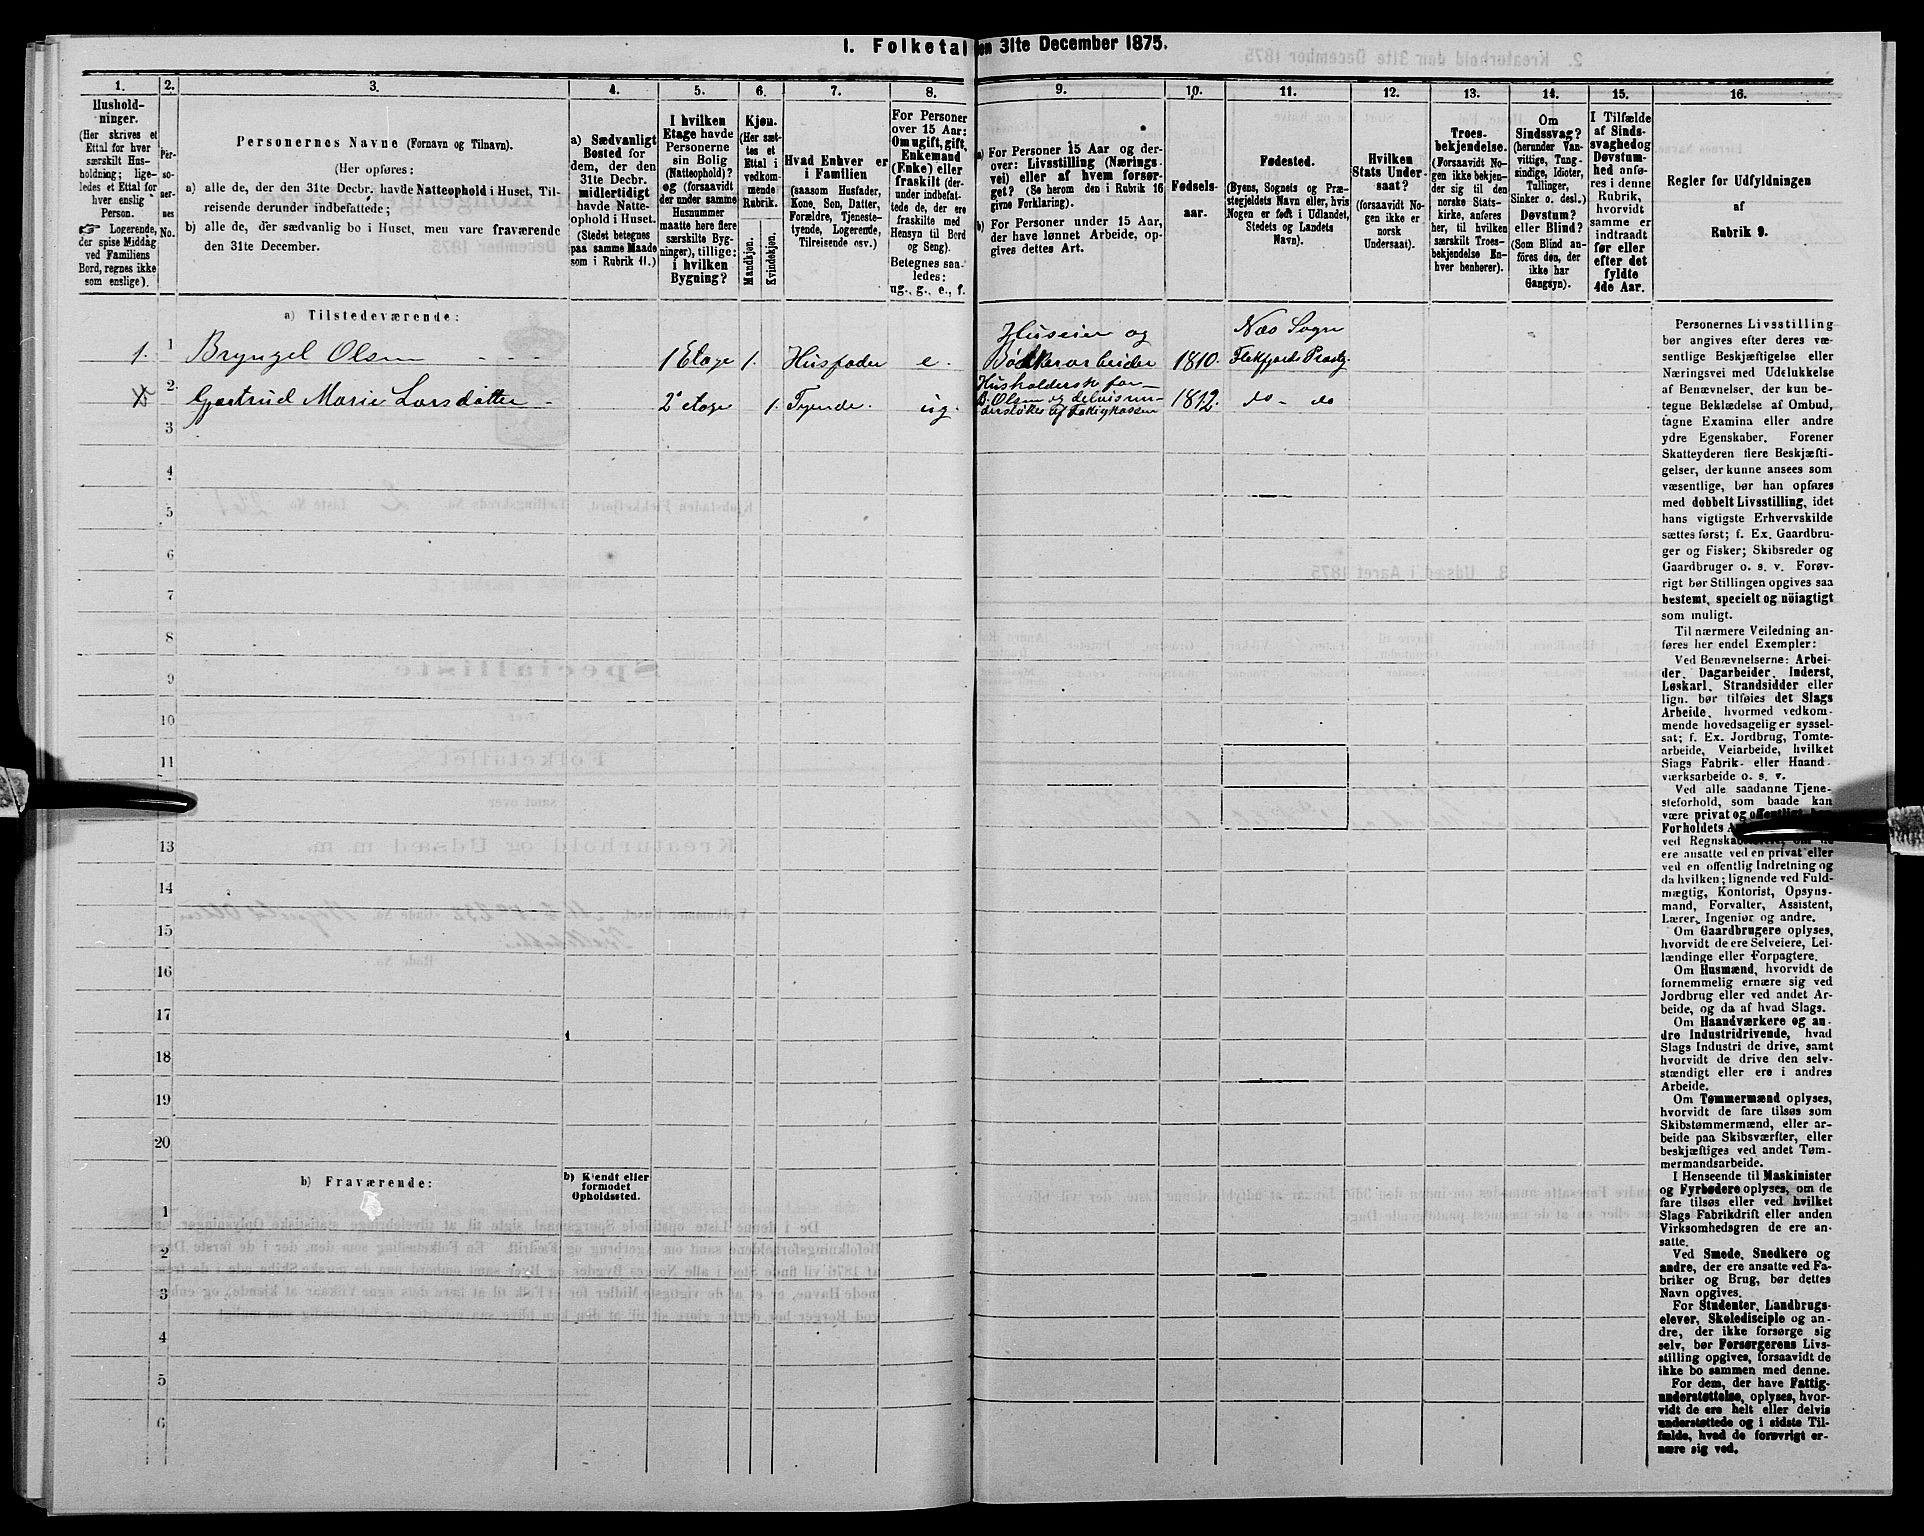 1. Folketal den 31te December 1875.
1.
2.
3.
4.
5.
6.
7.
8.
9.
10.
11.
12.
13.
14.
15.
16.
Hushold-
ninger.
(Her skrives et
Ettal for hver
særskilt Hus-
holdning; lige-
ledes et Ettal for
hver enslig
Person.
☞ Logerende,
der spise Middag
ved Familiens
Bord, regnes ikke
som enslige).
Per-
so-
ner-
nes
No.
Personernes Navne (Fornavn og Tilnavn).
(Her opføres:
a) alle de, der den 31te Decbr. havde Natteophold i Huset, Til-
reisende derunder indbefattede;
b) alle de, der sædvanlig bo i Huset, men vare fraværende
den 31te December.
a) Sædvanligt
Bosted for
dem, der den
31te Decbr.
midlertidigt
havde Natte-
ophold i Huset.
(Stedet betegnes
paa samme Maade
som i Rubrik 11.)
I hvilken
Etage havde
Personerne
sin Bolig
(Natteophold)?
og (forsaavidt
der under samme
Husnummer
maatte høre flere
særskilte Byg-
ninger), tillige:
i hvilken
Bygning?
Kjøn.
(Her sæt-
tes et
Ettal i
vedkom-
mende
Rubrik.
Mandkjøn.
Kvindekjøn.
Hvad Enhver er
i Familien
(saasom Husfader,
Kone, Søn, Datter,
Forældre, Tjeneste-
tyende, Logerende,
Tilreisende osv.)
For Personer
over 15 Aar:
Om ugift, gift,
Enkemand
(Enke) eller
fraskilt (der-
under indbefat-
tede de, der ere
fraskilte med
Hensyn til Bord
og Seng).
Betegnes saa-
ledes:
ug., g., e., f.
a) For Personer 15 Aar og der-
over: Livsstilling (Nærings-
vei) eller af hvem forsør-
get? (Se herom den i Rubrik 16
givne Forklaring).
b) For Personer under 15 Aar,
der have lønnet Arbeide, op-
gives dettes Art.
Fødsels-
aar.
Fødested.
(Byens, Sognets og Præ-
stegjeldets Navn eller, hvis
Nogen er født i Udlandet,
Stedets og Landets
Navn).
Hvilken
Stats Under-
saat?
(forsaavidt No-
gen ikke er
norsk
Undersaat).
Troes-
bekjendelse.
(Forsaavidt No-
gen ikke bekjen-
der sig til den
norske Stats-
kirke, anføres
her, til hvilken
særskilt Troes-
bekjendelse En-
hver henhører).
Om
Sindssvag?
(herunder Van-
vittige, Tung-
sindige, Idioter,
Tullinger,
Sinker o. desl.)
Døvstum?
eller Blind?
(Som Blind an-
føres den, der
ikke har
Gangsyn).
I Tilfælde
af Sinds-
svaghed og
Døvstum-
hed anfø-
res i denne
Rubrik,
hvorvidt
samme er
indtraadt
før eller
efter det
fyldte
4de Aar.
Regler for Udfyldningen
af
Rubrik 9.
a) Tilstedeværende:
1. 1 Bryngel Olsen 1 Etage 1. Husfader e. Huseier og Bødkerarbeider 1810. Næs Sogn Flekfjords Præstg.
2 Gjertrud Marie Larsdatter 2d etage 1. Tyende. ug. Husholderske for B. Olsen og delvis un- derstøttes af Fattigkassen 1812. do - do
3
4
5
6
7
8
9
10
11
13
14
15
16
17
18
19
20
b) Fraværende:
b) Kjendt eller
formodet
Opholdssted.
1
2
3
4
5
6
Personernes Livsstilling
bør angives efter deres væ-
sentlige Beskjæftigelse eller
Næringsvei med Udelukkelse
af Benævnelser, der kun be-
tegne Beklædelse af Ombud,
tagne Examina eller andre
ydre Egenskaber. Forener
Skatteyderen flere Beskjæfti-
gelser, der kunne ansees som
væsentlige, bør han opføres
med dobbelt Livsstilling, idet
hans vigtigste Erhvervskilde
sættes først; f. Ex. Gaardbru-
ger og Fisker; Skibsreder og
Gaardbruger o. s. v. Forøv-
rigt bør Stillingen opgives saa
bestemt, specielt og nöiagtigt
som muligt.
Til nærmere Veiledning an-
føres her endel Exempler:
Ved Benævnelserne: Arbei-
der, Dagarbeider, Inderst,
Løskarl, Strandsidder eller
lign. bør tilføies det Slags
Arbeide, hvormed vedkom-
mende hovedsagelig er syssel-
sat; f. Ex. Jordbrug, Tomte-
arbeide, Veiarbeide, hvilket
Slags Fabrik- eller Haand-
værksarbeide o. s. v.
Ved alle saadanne Tjene-
steforhold, som baade kan
være privat og offentligt
Forholdets
ved
ere ansatte ved en privat eller
ved en offentlig Indretning og
da hvilken; lignende ved Fuld-
mægtig, Kontorist, Opsyns-
mand, Forvalter, Assistent,
Lærer, Ingeniør og andre.
Om Gaardbrugere oplyses,
hvorvidt de ere Selveiere, Lei-
lændinge eller Forpagtere.
Om Husmænd, hvorvidt de
fornemmelig ernære sig ved
Jordbrug eller ved andet Ar-
beide, og da af hvad Slags.
Om Haandværkere og an-
dre Industridrivende, hvad
Slags Industri de drive, samt
hvorvidt de drive den selv-
stændigt eller ere i andres
Arbeide.
Om Tømmermænd oplyses,
hvorvidt de fare tilsøs som
Skibstømmermænd, eller ar-
beide paa Skibsværfter, eller
beskjæftiges ved andet Tøm-
mermandsarbeide.
I Henseende til Maskinister
og Fyrbødere oplyses, om de
fare tilsøs eller ved hvilket
Slags Fabrikdrift eller anden
Virksomhedsgren de ere an-
satte.
Ved Smede, Snedkere og
andre, der ere ansatte ved Fa-
briker og Brug, bør dettes
Navn opgives.
For Studenter, Landbrugs-
elever, Skoledisciple og an-
dre, der ikke forsørge sig
selv, bør Forsørgerens Livs-
stilling opgives, forsaavidt de
ikke bo sammen med denne.
For dem, der have Fattig-
understøttelse, oplyses, hvor-
vidt de ere helt eller delvis
understøttede og i sidste Til-
fælde, hvad de forøvrigt er-
nære sig ved.